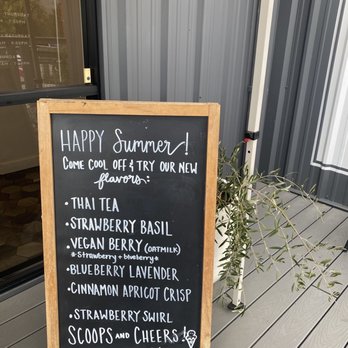 HAPPY Summer!
COME COOL OFF & TRY OUR NEW
flavors:
• THAI TEA
• STRAWBERRY BASIL
• VEGAN BERRY (OATMILK)
* Strawberry + blueberry *
• BLUEBERRY LAVENDER
• CINNAMON APRICOT CRISP
• STRAWBERRY SWIRL
SCOOPS AND CHEERS!